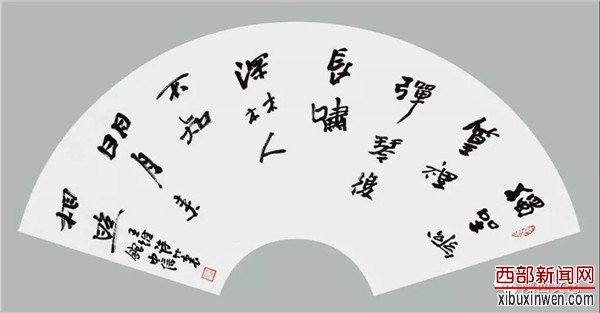 獨坐幽
篁裏
彈琴復
長嘯
深林人
不知
明月來
相照
王維詩
西部新闻网
xibuxinwen.com